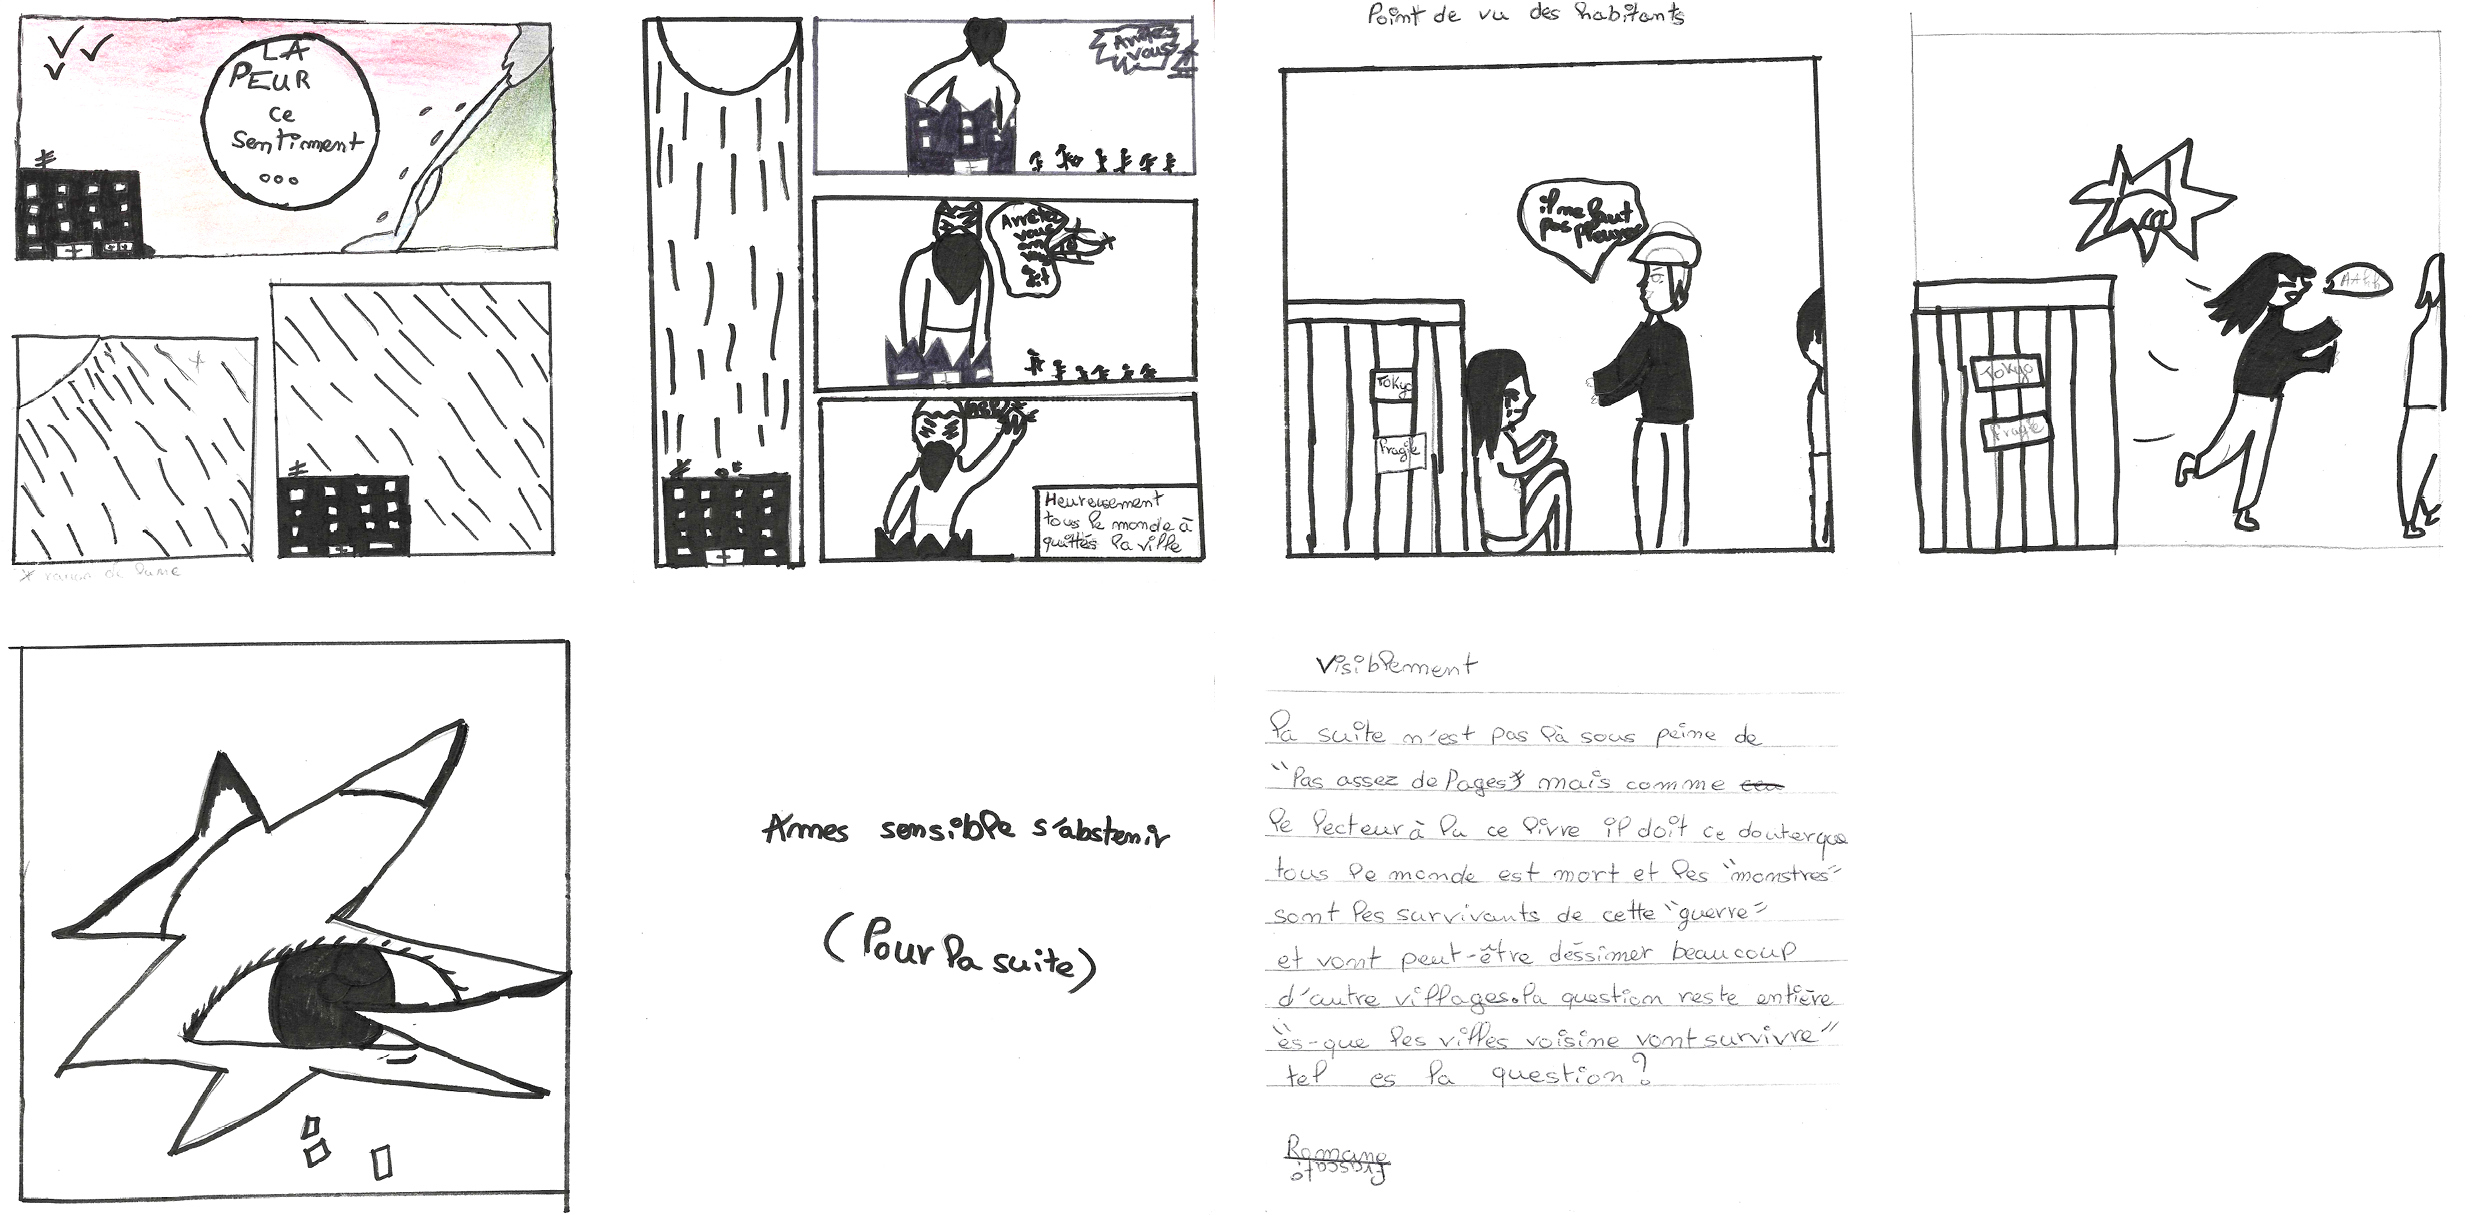 LA
PEUR
ce
sentiment
...
* rayon de lune
Arrêtez
vous
Arrêtez
vous
on
vous
a
dit
Heureusement
tous le monde à
quittés la ville
Point de vu des habitants
il ne faut
pas pleurer
Tokyo
fragile
Tokyo
fragile
Armes sensible s'abstenir
(Pour la suite)
Visiblement
la suite n'est pas là sous peine de
"Pas assez de Pages" mais comme
le lecteur à lu ce livre il doit ce douter que
tous le monde est mort et les "monstres"
sont les survivants de cette "guerre"
et vont peut-être dessimer beaucoup
d'autre villages. la question reste entière
"ès-que les villes voisine vont survivre"
tel es la question?
Romane
Frascati